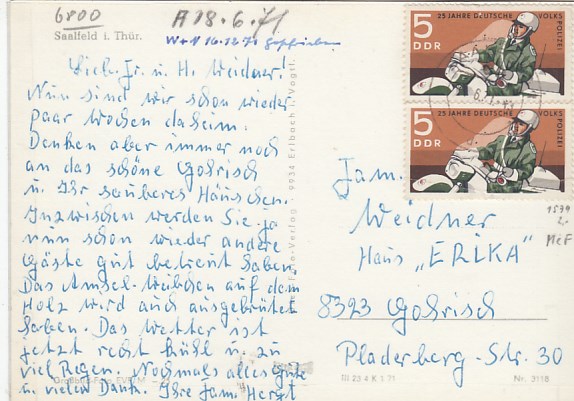 6800
A 18.6.71
Saalfeld i. Thür.
W+N 16.12.71 geschrieben
Lieb. Fr. u. H. Weidner!
Nun sind wir schon wieder
paar Wochen daheim.
Denken aber immer noch
an das schöne Gohrisch
u. Ihr sauberes Häuschen.
Inzwischen werden Sie ja
nun schon wieder andere
Gäste gut betreut haben.
Das Amsel-Weibchen auf dem
Holz wird auch ausgebrütet
haben. Das Wetter ist
jetzt recht kühl u. zu
viel Regen. Nochmals alles Gute
u. vielen Dank. Ihre Fam. Herzt
Foto-Verlag 9934 Erlbach i. Vogtl.
5 25 JAHRE DEUTSCHE VOLKS POLIZEI
DDR
5 25 JAHRE DEUTSCHE VOLKS POLIZEI
DDR
Fam.
Weidner
Haus „ERIKA"
8323 Gohrisch
Pladerberg-Str. 30
1539
2.-
MeF
III 23 4 K 1 71
Nr. 3118